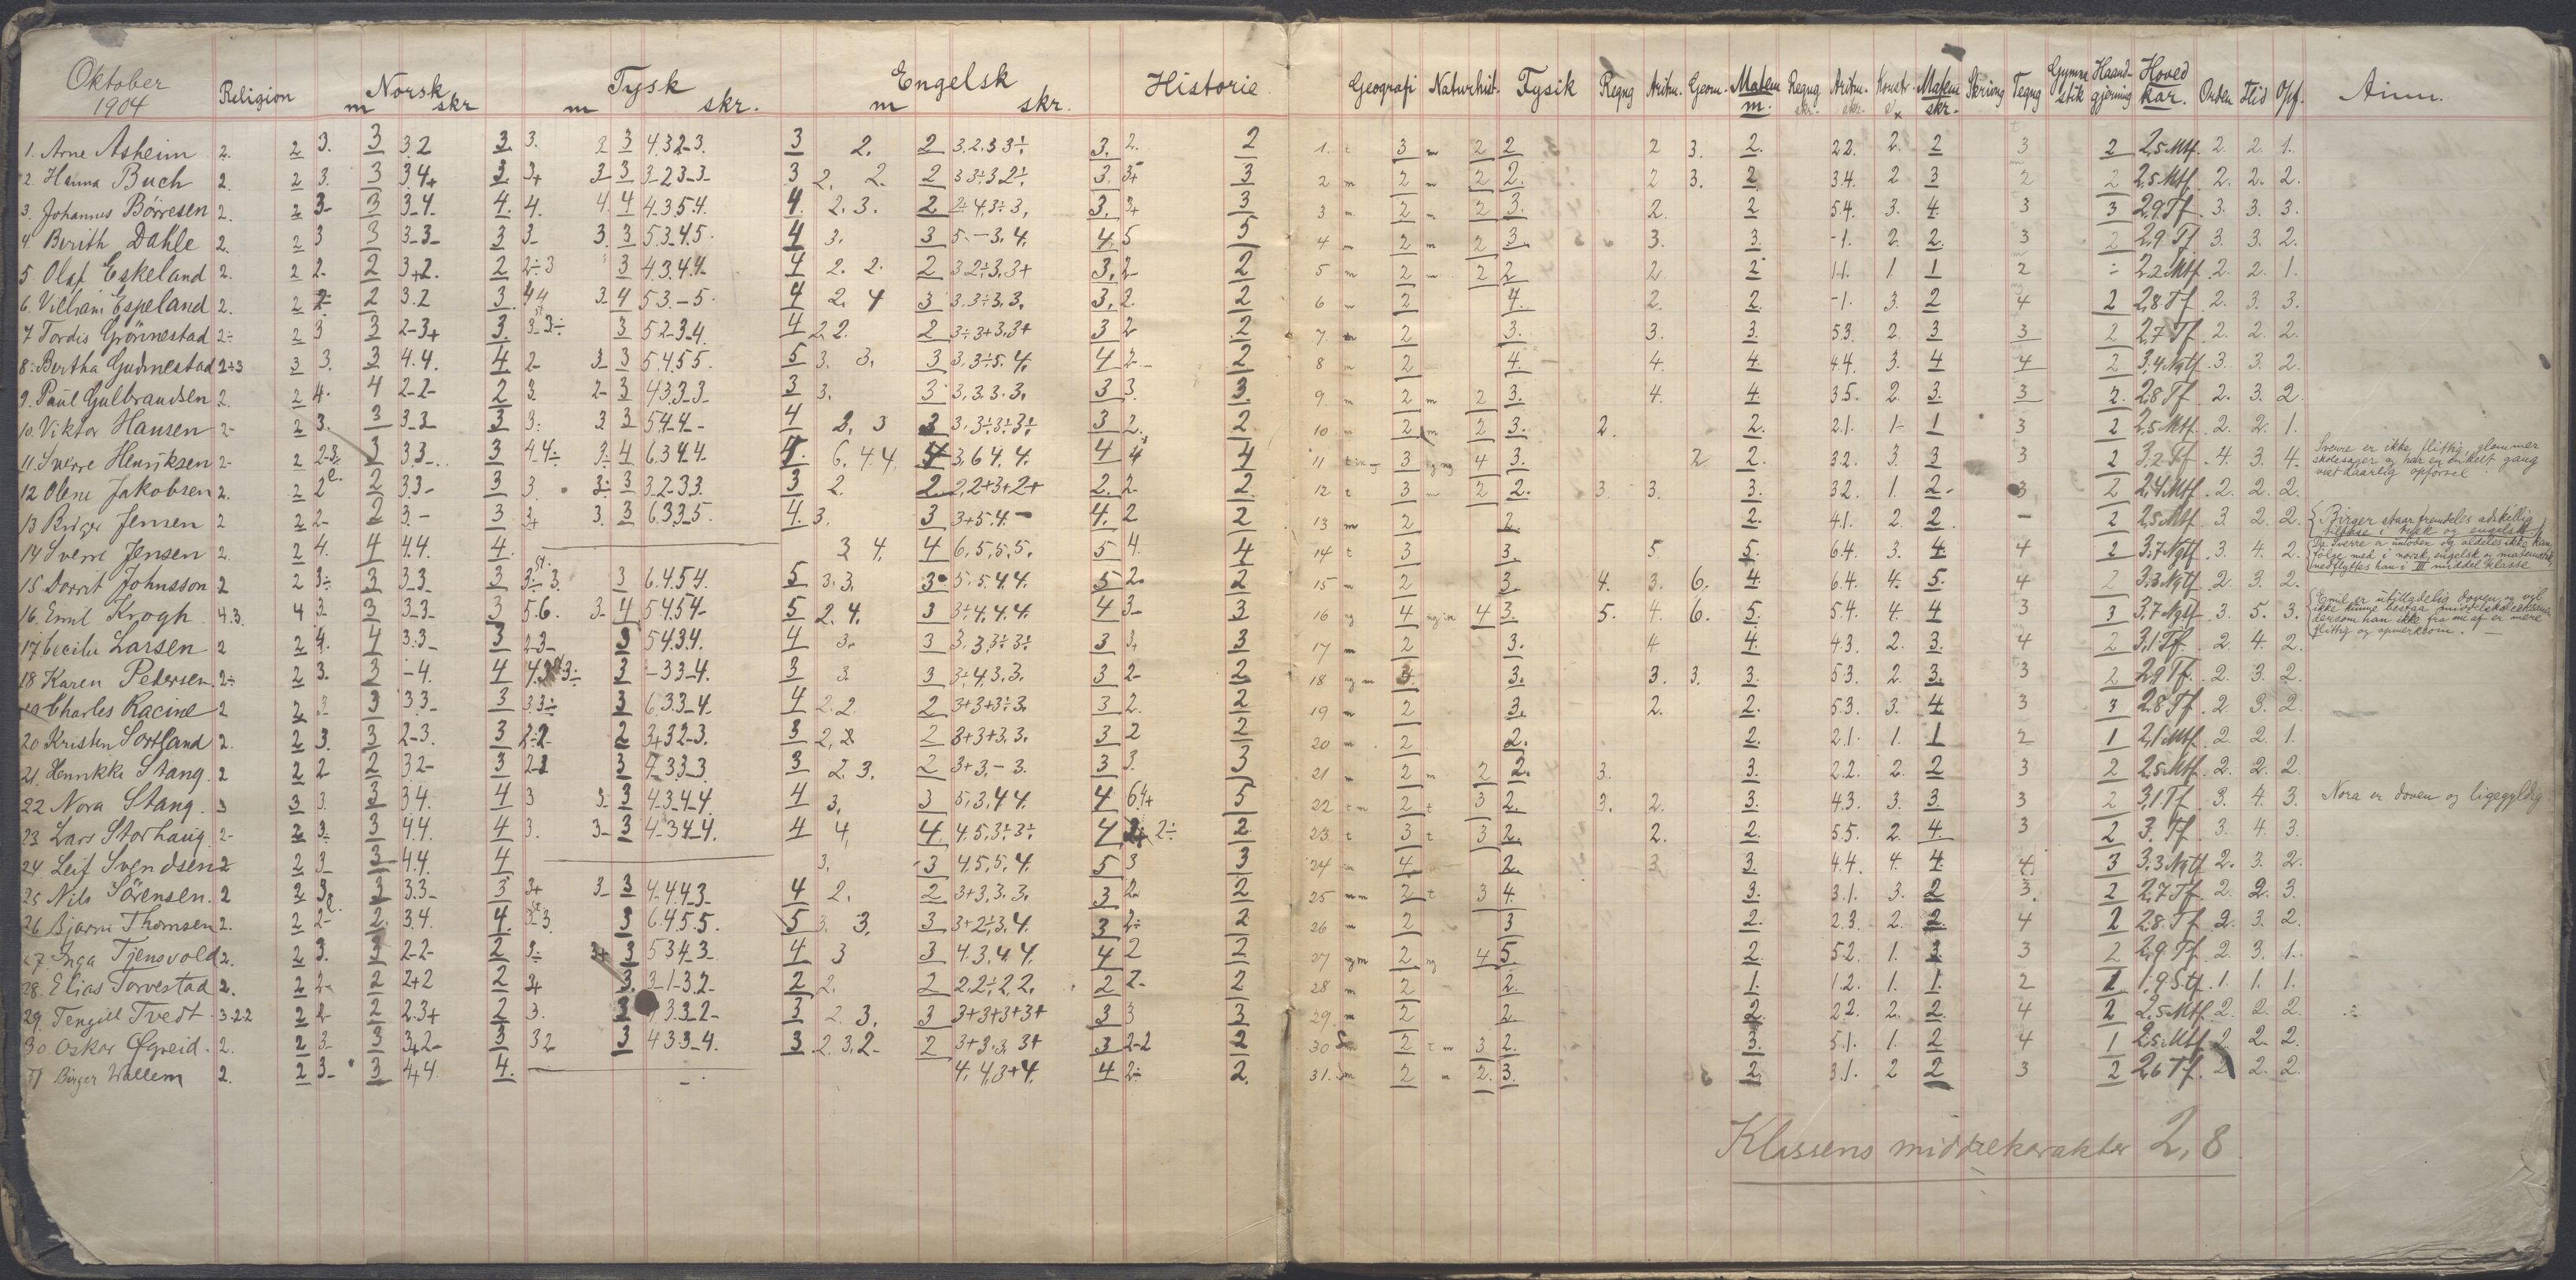 Oktober
1904
Religion
Norsk
m skr
Tysk
m skr.
Engelsk
m skr.
Historie.
Geografi Naturhist. Fysik Regng Aritm. Geom. Matem m. Regng skr. Aritm. skr. Matem skr. Skrivng Tegng Gymnastik Haandgjerning Hovedkar. Orden Flid Opf. Anm.
1. Arne Asheim 2. 2 3. 3 3 2 3. 3. 3 4.3 2-3. 3 2. 2 3. 2. 3. 2
2. Hanna Buch 2. 2 3. 3 3 4+ 3. 3+ 3- 3 3-2 3-3- 3 2. 2. 2 3. 3+ 3
3. Johannes Börresen 2. 2 3- 3 3-4. 4. 4. 4. 4 4-3.5.4. 4. 2. 3. 2 3. 3+ 3
4. Berith Dahle 2. 2 3 3 3-3- 3 3- 3. 3 5.3-4.5. 4 3. 3 5.-3.4. 4. 5 5
5 Olaf Eskeland 2. 2 2- 2 3+2. 2 2÷3 3 4.3.4.4- 4 2. 2. 2 3 2÷3.3+ 3. 2- 2
6. Vilhain Espeland 2. 2 2÷ 2 3.2 3. 44 3-4 5 3.-5. 4 2. 4 3 3.3÷3.3. 3. 2. 2
7 Tordis Grönnestad 2÷ 2 3 3 2-3+ 3. 3-3÷ 3 5 2.3-4. 4 2 2. 2 3÷3+3.3+ 3 2 2
8. Bertha Gudmestad 2+3 3 3. 3 4.4. 4 2- 3-3 5.4.5 5. 5 3. 3. 3 3.3÷5.4. 4 2- 2
9. Paul Gulbrandsen 2. 2 4. 4 2-2- 2 3. 2-3 4 3 3-3- 3 3. 3 3.3.3.3. 3 3. 3.
10. Viktor Hansen 2- 2 3. 3 3-3 3 3. 3 3 5.4.4.- 4 3. 3 3 3 2. 2
11. Sverre Henriksen 2- 2 3 3.3-. 3 4-4÷ 3-4 6.3 4.4- 4. 6. 4 4. 4 3.6 4.4. 4 4 4
12 Olene Jakobsen 2. 2 2 2 3.3- 3 3. 3÷3 3 2-3 3. 3 2. 2. 2,2+3+2+ 2. 2- 2.
13 Birger Jensen 2 2 2- 2 3.- 3 3+ 3. 3 6.3 3-5. 4. 3. 3 3+5.4.- 4. 2 2
14 Sverre Jensen 2. 2 4. 4 4.4. 4. 3 4. 4 6.5.5.5. 5 4. 4
15 Dorrit Johnsson 2 2 3÷ 3 3-3- 3 3÷3 3 6.4.5 4. 5 3.3. 3 5.5.4.4. 5 2. 2
16. Emil Krogh 4.3. 4 3- 3 3-3- 3 5.6. 3-4 5.4.5 4- 5 2. 4. 3 3÷4.4.4. 4 3- 3
17. Cecilie Larsen 2 2 4. 4 3.3- 3 2-3- 3 5 4.3 4. 4 3. 3 3.3.3÷3÷ 3 3+ 3
18 Karen Petersen 2÷ 2 3. 3 -4. 4 3 -3 3-4. 3 3. 3 3÷4.3.3. 3 2- 2
19 Charles Racine 2 2 3 3 3 3- 3 3.3÷ 3 6.3.3-4. 4 2.2. 2 3+3+3÷3. 3 2. 2
20 Kristen Sortland 2. 2 3. 3 2-3. 3 2÷2- 2 3+3 2-3. 3 2. 2 3+3+3.3. 3 2 2
21. Hennikke Stang. 2 2 2 2 3 2- 3 2-3 3 3 2. 3. 2 3+3.-3. 3 3. 3
22 Nora Stang. 3 3 3. 3 3 4. 4 3 3-3 4-3-4-4. 4 3. 3 5.3.4 4. 4 5
23 Lars Storhaug. 2- 2 3÷ 3 4.4. 4 3. 3-3 4-3 4-4. 4 4. 4 4.5.3÷3÷ 4 2÷ 2
24 Leif Svendsen 2 2 3- 3- 4.4. 4 3. 3 4.5.5.4. 5 3 3
25 Nils Sörensen. 2 2 3 3 3.3- 3 3+ 3-3 4-4.4-3- 4 2. 2 3+3.3.3. 3 2- 2
26 Bjarne Thomsen 2. 2 2- 2. 3.4. 4. 3-3. 3 6.4.5.5. 5 3. 3. 3 3+2÷3.4. 3 2÷ 2
27. Inga Tjensvold 2. 2 3. 3 2-2- 2 3÷ 3+3 5 3 4-3. 4 3 3 4.3.4.4. 4 2 2
28. Elias Torvestad 2. 2 2- 2 2+2 2 3+ 3. 3-1-3.2- 2 2. 2 2.2÷2.2. 2 2- 2
29. Tengill Tvedt 3-2 2 2 2 2 2.3+ 2 3. 3 3.3.2- 3 2 3. 3 3+3+3+3+ 3 3 3
30. Oskar Øgreid. 2. 2 3- 3 3+2- 3 3 2 3 4 3 3-4. 3 2. 3. 2- 2 3+3.3.3+ 3 2-2 2
31 Birger Wallem 2. 2 3- 3 4+4. 4. 4. 4.3+4. 4 2÷ 2.
1. t 3 m 2 2 2 3. 2. 2 2. 2. 2 3 2 2,5 Mtf. 2. 2. 1.
2 m 2 m 2 2. 2 3. 2 3.4. 2 3 2 2 2,5 Mtf. 2. 2. 2.
3 m 2 m 2 3. 2. 2 5.4. 3. 4. 3 3 2,9 Tf. 3. 3. 3.
4 m 2 m 2 3. 3. 3. -1. 2. 2. 3 2 2,9 Tf 3. 3. 2.
5 m 2 m 2 2 2 2 1.1. 1 1 2 ÷ 2,2 Mtf. 2. 2. 1.
6 m 2 4. 2. 2. -1. 3. 2 4 2 2,8 Tf. 2. 3. 3.
7 m 2 3. 3. 3. 5 3. 2. 3 3 2 2,7 Tf. 2. 2. 2.
8 m 2 4. 4. 4. 4.4. 3. 4 4 2 3,4 Ngtf. 3. 3. 2.
9 m 2 m 2 3. 4. 4. 3 5. 2. 3. 3 2. 2,8 Tf. 2. 3. 2.
10 m 2 m 2 3. 2. 2. 2.1. 1- 1 3 2 2,5 Mtf. 2. 2. 1.
11 3 4 3. 2 2. 3 2. 3. 3 3 2 3,2 Tf. 4. 3. 4. Sverre er ikke flittig, glemmer
skolesager og har en enkelt gang
vist daarlig opførsel
12 t 3 m 2 2. 3. 3. 3. 3 2. 1. 2- 3 2 2,4 Mtf. 2. 2. 2.
13 m 2 2. 2. 4.1. 2. 2 - 2 2,5 Mtf. 3. 2. 2. Birger staar fremdeles adskillig
tilbage i tysk og engelsk
14 t 3 3. 5. 5. 6.4. 3. 4 4 2 3,7 Ngtf. 3. 4. 2. Da Sverre er udoven og aldeles ikke kan
følge med i norsk, engelsk og matematik
nedflyttes han i III middelklasse
15 m 2 3. 4. 3. 6. 4. 6.4. 4. 5. 4 2 3,3 Ngtf. 2. 3. 2.
16 ng 4 4 3. 5. 4. 6. 5. 5.4. 4. 4 3 3 3,7 Ngtf. 3. 5. 3. Emil er utilladelig doven og vil
ikke kunne bestaa middelskoleeksamen
dersom han ikke fra nu af er mere
flittig og opmerksom.
17 m 2 3. 4 4. 4.3. 2. 3. 4 2 3,1 Tf. 2. 4. 2.
18 ng m 3. 3. 3. 3. 3. 5 3. 2. 3. 3 2 2,9 Tf. 2. 3. 2.
19 m 2 3. 2. 2. 5 3. 3. 4 3 3 2,8 Tf. 2. 3. 2.
20 m 2 2. 2. 2.1. 1. 1 2 1 2,1 Mtf. 2. 2. 1.
21 m 2 m 2 2. 3. 3. 2.2. 2. 2 3 2 2,5 Mtf. 2. 2. 2.
22 t m 2 t 3 2. 3. 2. 3. 4.3. 3. 3 3 2 3,1 Tf 3. 4. 3. Nora er doven og ligegyldig
23 t 3 t 3 2. 2. 2. 5.5. 2. 4. 3 2 3. Tf. 3. 4. 3.
24 m 4 2. 3. 3. 4.4. 4. 4. 4 3 3,3 Ngtf. 2. 3. 2.
25 2 t 3 4. 3. 3.1. 3. 2 3. 2 2,7 Tf. 2. 2. 3.
26 m 2 3 2. 2.3. 2. 2. 4 2 2,8 Tf. 2. 3. 2.
27 ng m 2 ng 4 5. 2. 5 2. 1. 3. 3 2 2,9 Tf. 2. 3. 1.
28 m 2 2. 1. 1.2. 1. 1. 2 1. 1,9 S.tf. 1. 1. 1.
29. m 2 2 2. 2 2. 2. 2. 4 2 2,5 Mtf. 2. 2. 2.
30 2 t m 3 2. 3. 5.1. 1. 2 4 1 2,5 Mtf. 2. 2. 2.
31. m 2 m 2. 3. 2. 3.1. 2 2 3 2 2,6 Tf. 2 2. 2.
Klassens middelkarakter 2,8